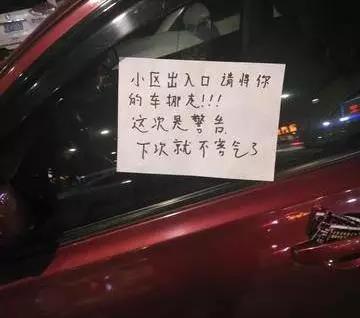 小区出入口 请将你
的车挪走!!!
这次是警告
下次就不客气了